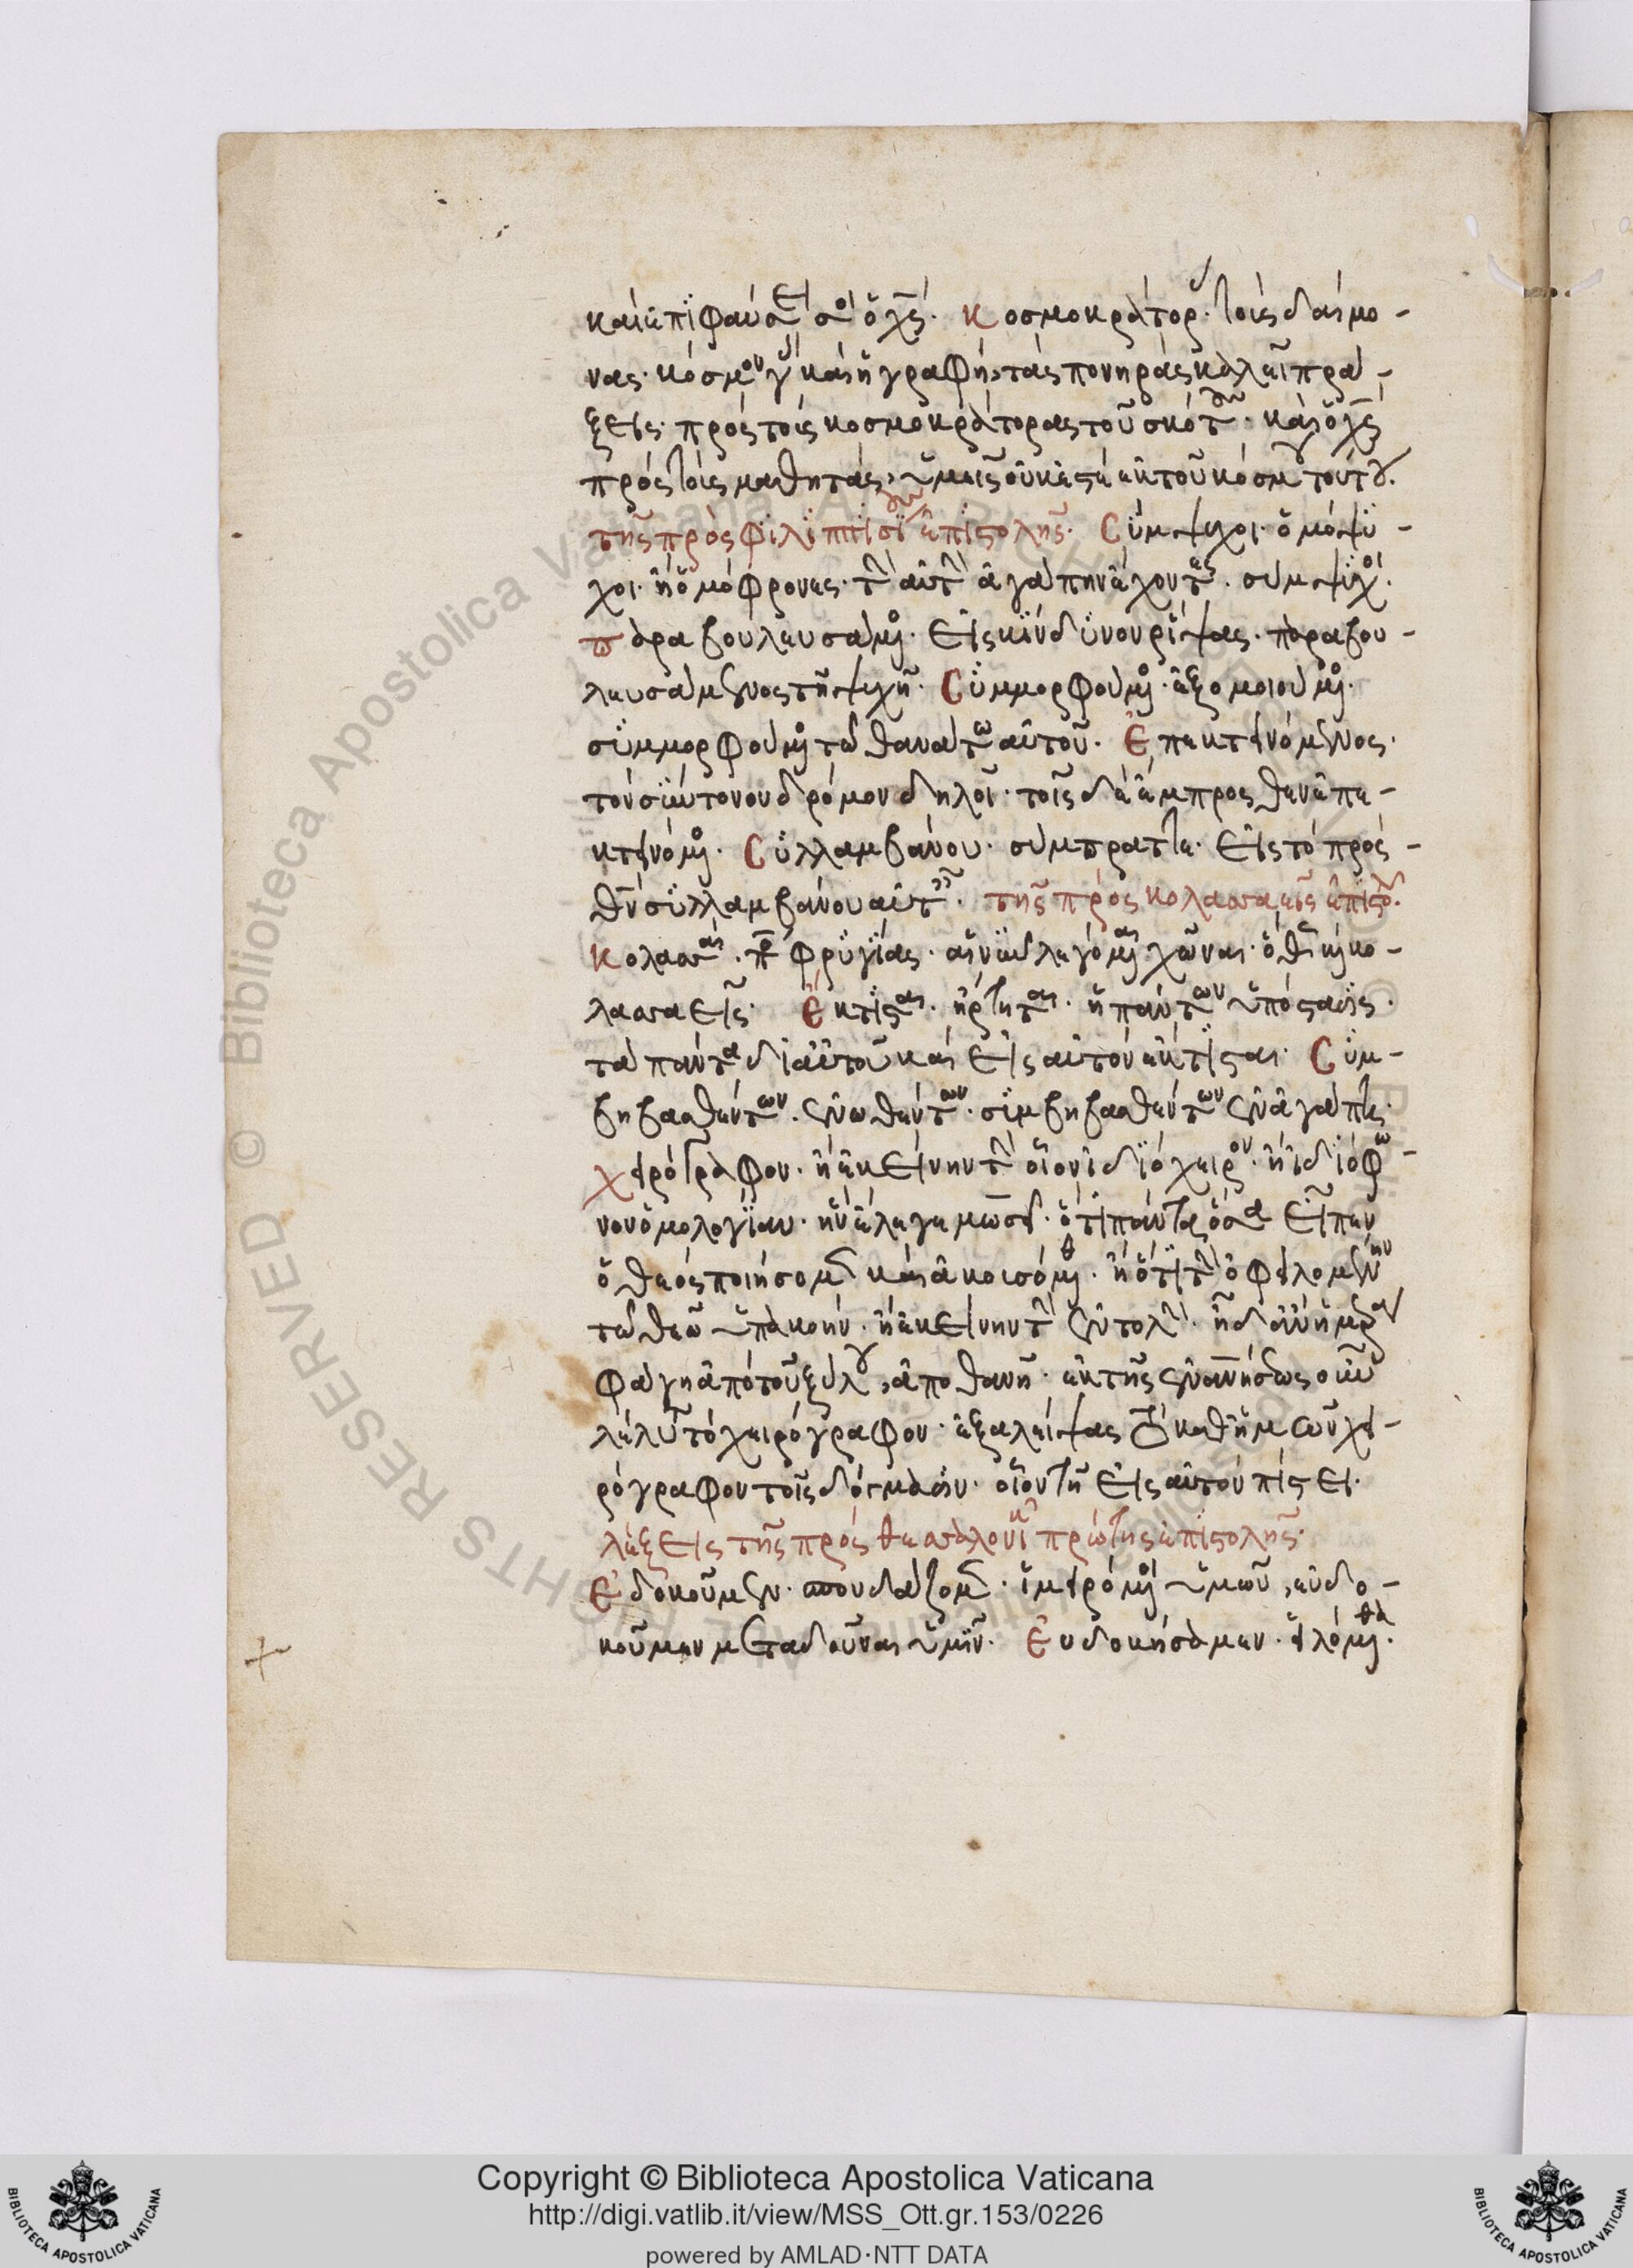 καὶ ἐπιφαύσει σοι ὁ χς. κοσμοκράτορ. τοὺς δαίμο-
νας. κόσμον γὰρ καὶ ἡ γραφὴ, τὰς πονηρὰς καλεῖ πρά-
ξεις. πρὸς τοὺς κοσμοκράτορας τοῦ σκότους. καὶ ὁ χς
πρὸς τοὺς μαθητάς, ὑμεῖς οὐκ ἐστὲ ἐκ τοῦ κόσμου τούτου.
τῆς πρὸς φιλιππισίους ἐπιστολῆς. Σύμψυχοι. ὁμόψυ-
χοι. ἢ ὁμόφρονες. τὴν αὐτὴν ἀγάπην ἔχοντες. συμψυχοι.
παραβουλευσάμενος. εἰς κίνδυνον ῥίψας. παραβου-
λευσάμενος τῇ ψυχῇ. Συμμορφούμενος. ἐξομοιούμενος.
συμμορφούμενος τῷ θανάτω αὐτοῦ. Ἐπεκτεινόμενος.
τὸν σύντονον δρόμον δηλοῖ. τοῖς δὲ ἔμπροσθεν ἐπε-
κτεινόμενος. Συλλαμβάνου. συμπράττε. εἰς τὸ πρὸς-
θεν συλλαμβάνου αὐταῖς. τῆς πρὸς κολασσαεῖς ἐπιστο.
Κολασσαὶ. π φρυγίας. αἱ νῦν λεγόμεναι χῶναι. ὅθεν καὶ κο-
λασσαεῖς. Ἔκτισται. ἤρτηται. ἡ πάντων ὑπόστασις.
τὰ πάντα δι αὐτοῦ καὶ εἰς αὐτὸν ἔκτισται. Συμ-
βηβασθέντων. ἑνωθέντων. συμβηβασθέντων ἐν ἀγάπῃ.
χειρόγραφον. ἢ ἐκείνην τὴν οἱονεὶ ἰδιόχειρον. ἢ ἰδιόφω-
νον ὁμολογίαν. ἣν ἔλεγε μωσῆ. ὅτι πάντα ὅσα εἶπεν
ὁ θεὸς ποιήσομεν καὶ ἀκουσόμεθα. ἢ ὅτι τὴν ὀφειλομένην
τῷ θεῷ ὑπακοήν. ἢ ἐκείνην τὴν ἐντολὴν. ᾗ δ ἂν ἡμέρα
φάγῃ ἀπὸ τοῦ ξύλου, ἀποθανῇ. ἐκ τῆς
λέλυται τὸ χειρόγραφον. ἐξαλείψας τὸ καθ ἡμῶν χει-
ρόγραφον τοῖς δόγμασιν. οἷον τῇ εἰς αὐτὸν πίστει.
λέξεις τῆς πρὸς θεσσαλονικεῖς πρώτης ἐπιστολῆς.
Εὐδοκοῦμεν. σπουδάζομεν. ἱμειρόμενοι ὑμῶν, εὐδο-
κοῦμεν μεταδοῦναι ὑμῖν. Εὐδοκήσαμεν. εἱλόμεθα.
Copyright © Biblioteca Apostolica Vaticana
http://digi.vatlib.it/view/MSS_Ott.gr.153/0226
powered by AMLAD·NTT DATA